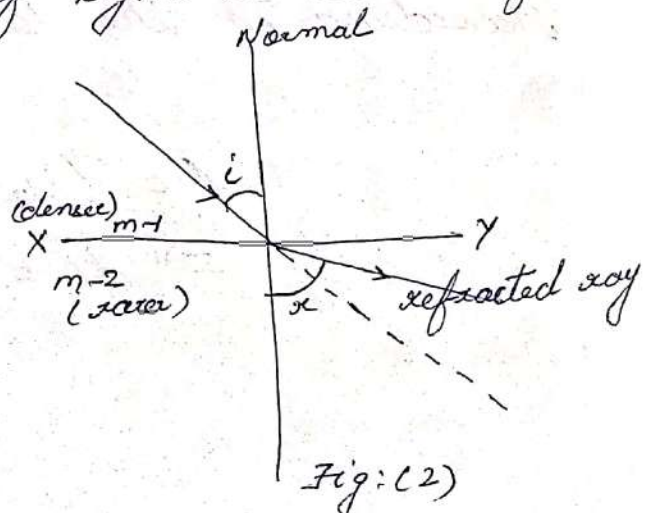 Normal
i
(denser) m-1
X Y
m-2
(rarer)
r
refracted ray
Fig:(2)